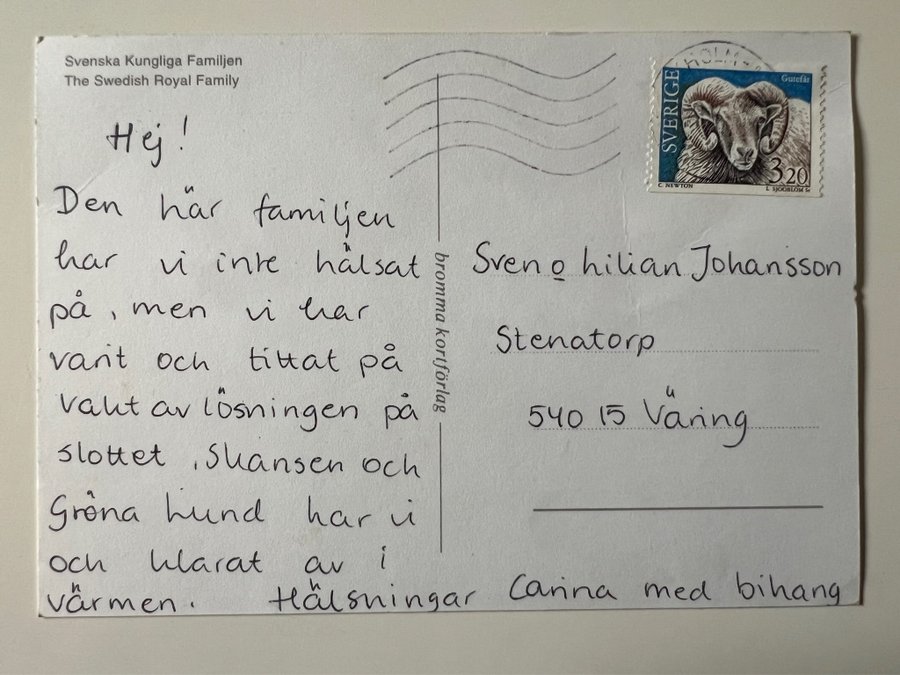 Svenska Kungliga Familjen
The Swedish Royal Family
Hej!
Den här familjen
har vi inte hälsat
på, men vi har
varit och tittat på
vaktavlösningen på
slottet, Skansen och
Gröna Lund har vi
och klarat av i
värmen. Hälsningar Carina med bihang
bromma kortförlag
HOLM
SVERIGE
Gutefår
3.20
C. NEWTON
L. SJÖÖBLOM Sc
Sven o Lilian Johansson
Stenatorp
540 15 Väring